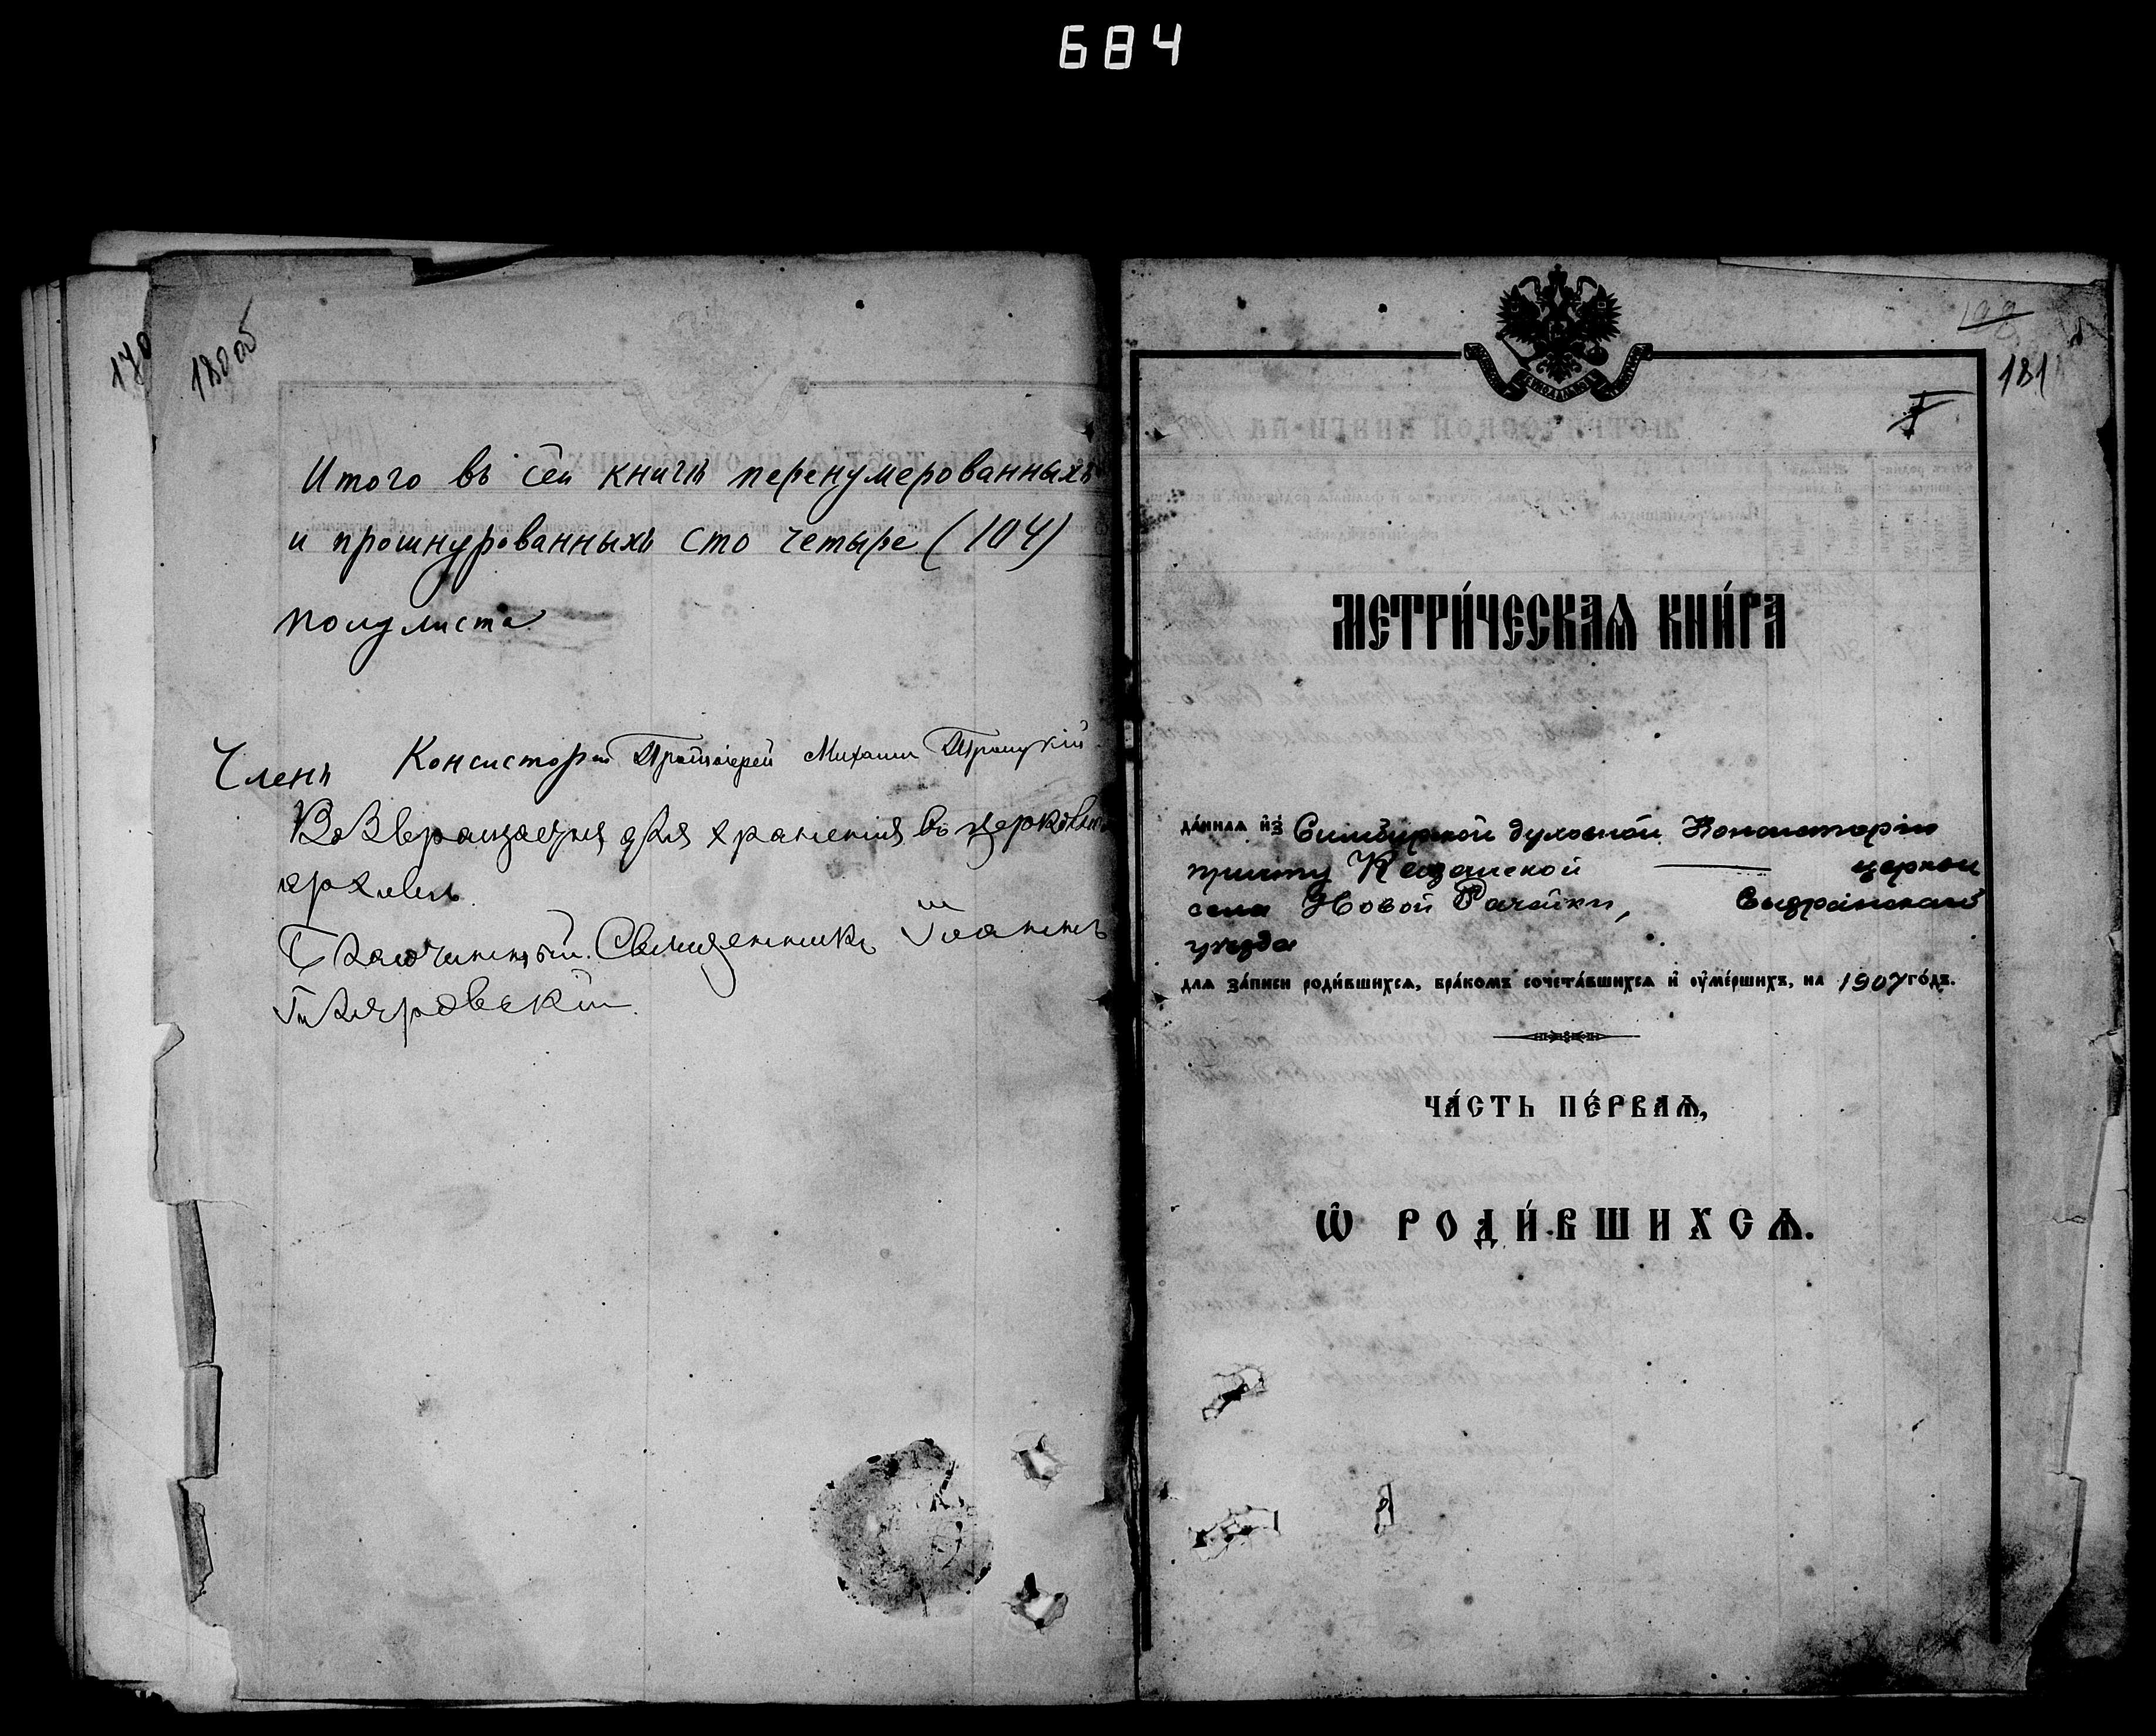 684
180 об
Итого въ сей книгѣ перенумерованныхъ
и прошнурованныхъ сто четыре (104)
полулиста
Членъ Консисторіи Протоіерей Михаилъ Троицкій
Возвращается для хранения въ церковномъ
архивѣ
Благочинный Священникъ Іоаннъ
181
I
МЕТРИ́ЧЕСКАѦ КНИ́ГА
да́ннаѧ и҆з̾ Симбирской духовной Консисторіи
причту Казанской церкви
села Новой Рачейки, Сызранскаго
уѣзда
длѧ за́писи роди́вшихсѧ, бра́комъ сочета́вшихсѧ и҆ ᲂу҆ме́ршихъ, на 1907 го́дъ.
ЧА́СТЬ ПЕ́РВАѦ,
Ѡ҆ РОДИ́ВШИХСѦ.